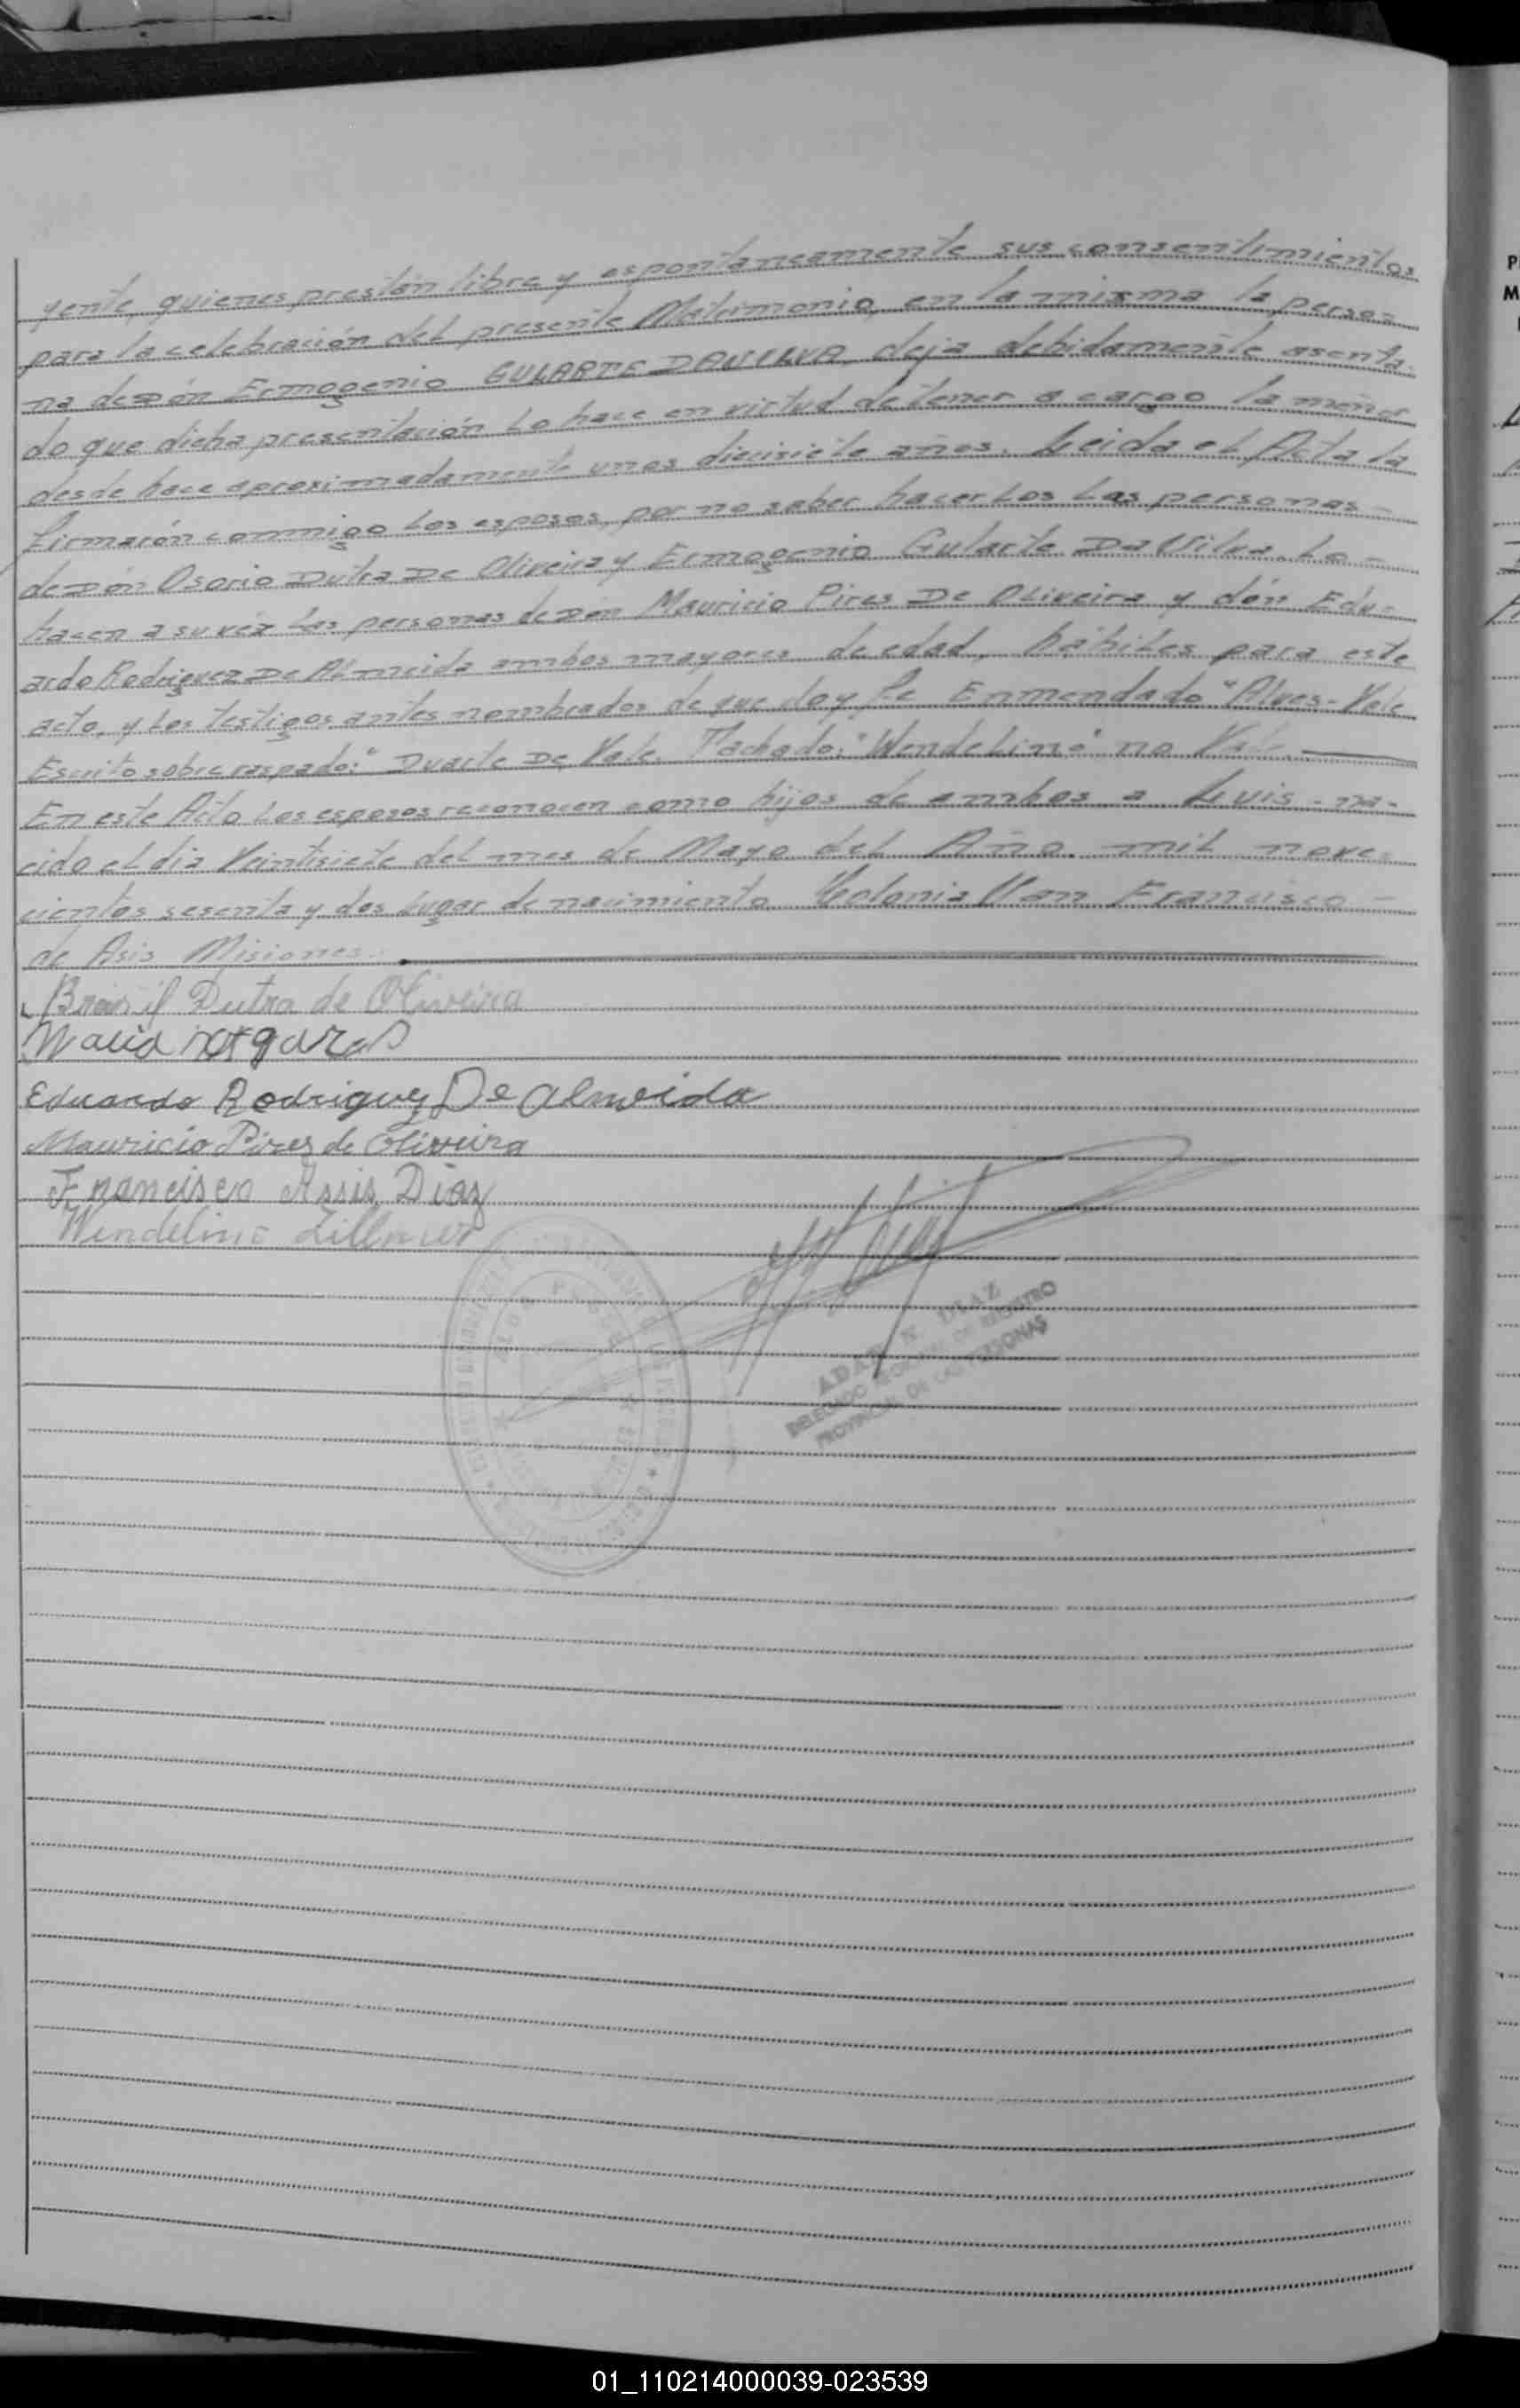 gente, quienes prestón libre y espontaneamente sus consentimientos
para la celebración del presente Matrimonio, en la misma la perso-
na de Dón Ermogenio GULARTE DA SILVA, deja debidamente asenta-
do que dicha presentación Lo hace en virtud de tener a cargo la menor
desde hace aproximadamente unos diecisiete años. Leida el Acta la
firmarón conmigo Los esposos, por no saber hacerlos Las personas -
de Dón Osorio Dutra De Oliveira y Ermogenio Gularte Da Silva. Lo -
hacen a su véz Las personas de Dón Mauricio Pires De Oliveira y dón Edu-
ardo Rodriguez De Almeida ambos mayores de edad, hábiles para este
acto, y Los testigos antes nombrados de que doy fe Enmendado "Alves- Vale
Escrito sobre raspado: " Duarte De Vale. Tachado: "Wendelino" no Vale
En este Acto Los esposos reconocen como hijos de ambos a Luis - na-
cido el dia Veintisiete del mes de Mayo del Año mil nove-
cientos sesenta y dos Lugar de nacimiento Colonia San Francisco -
de Asis Misiones.
Brasil Dutra de Oliveira
Maria
Eduardo Rodriguez De Almeida
Mauricio Pires de Oliveira
Francisco Assis Diaz
Wendelino Zillmer
DIAZ
DELEGADO DE REGISTRO
PROVINCIAL DE LAS PERSONAS
P
M
01_110214000039-023539